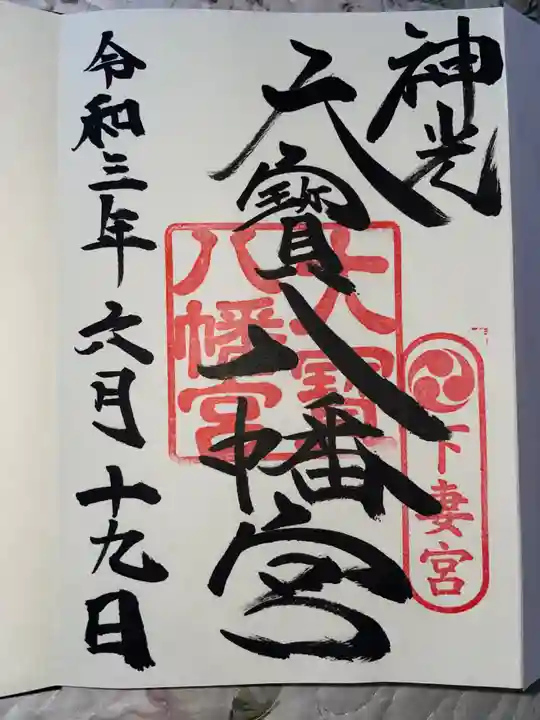 神光
大寶八幡宮
大寶
八幡宮
下妻宮
令和三年六月十九日